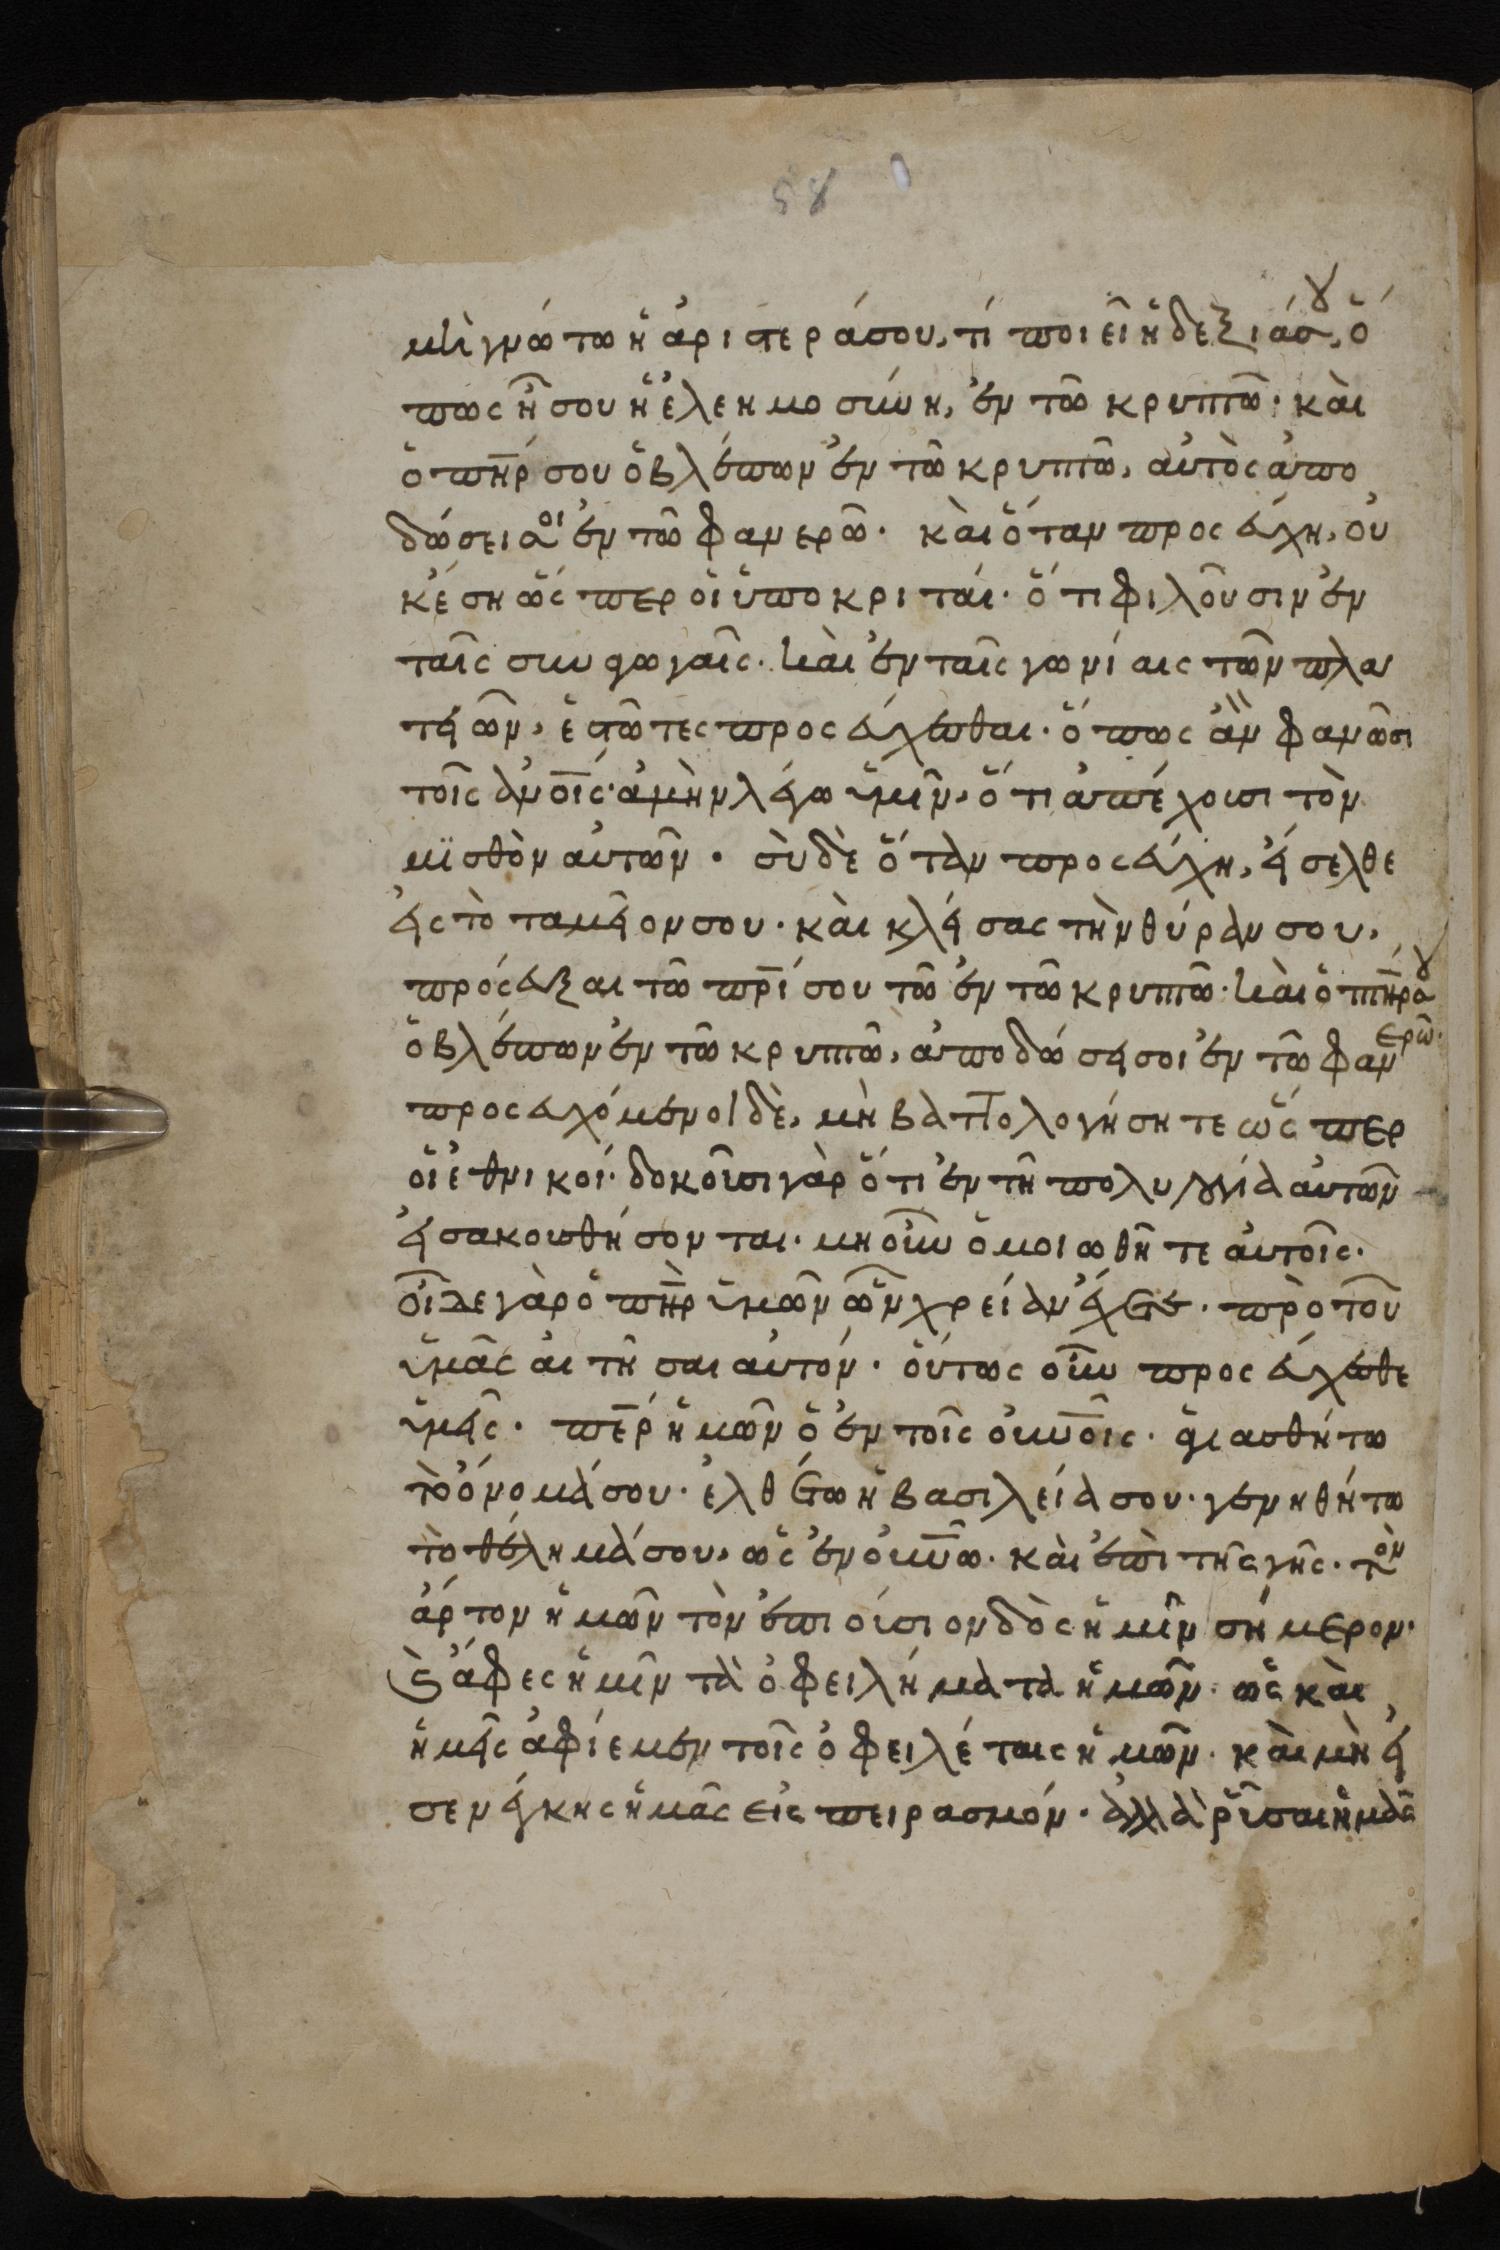 58
μὴ γνώτω ἡ ἀριστερά σου, τί ποιεῖ ἡ δεξιά σου, ὅ
πως ἦ σου ἡ ἐλεημοσύνη, ἐν τῶ κρυπτῶ· καὶ
ὁ πηρ σου ὁ βλέπων ἐν τῶ κρυπτῶ, αὐτὸς ἀπο
δώσει σοι ἐν τῶ φανερῶ· καὶ ὅταν προσεύχη, οὐ
κ ἔση ὥσπερ οἱ ὑποκριταί· ὅτι φιλοῦσιν ἐν
ταῖς συναγωγαῖς· καὶ ἐν ταῖς γωνίαις τῶν πλα
τειῶν, ἑστῶτες προσεύχεσθαι· ὅπως ἂν φανῶσι
τοῖς ἀνοις· ἀμὴν λέγω ὑμῖν, ὅτι ἀπέχουσι τὸν
μισθὸν αὐτῶν· σὺ δὲ ὅταν προσεύχη, εἴσελθε
εἰς τὸ ταμεῖον σου· καὶ κλείσας τὴν θύραν σου,
πρόσευξαι τῶ πρι σου τῶ ἐν τῶ κρυπτῶ· καὶ ὁ πηρ σου
ὁ βλέπων ἐν τῶ κρυπτῶ, ἀποδώσει σοι ἐν τῶ φανερῶ·
προσευχόμενοι δὲ, μὴ βαττολογήσητε ὥσπερ
οἱ ἐθνικοί· δοκοῦσι γὰρ ὅτι ἐν τῆ πολυλογία αὐτῶν
εἰσακουσθήσονται· μὴ οὖν ὁμοιωθῆτε αὐτοῖς·
οἶδε γὰρ ὁ πηρ ὑμῶν ὧν χρείαν ἔχετε· πρὸ τοῦ
ὑμᾶς αἰτῆσαι αὐτόν· οὕτως οὖν προσεύχεσθε
ὑμεῖς· περ ἡμῶν ὁ ἐν τοῖς οὐνοις· ἁγιασθήτω
τὸ ὄνομά σου· ἐλθέτω ἡ βασιλεία σου· γενηθήτω
τὸ θέλημά σου, ὡς ἐν οὐνω· καὶ ἐπὶ τῆς γῆς· τὸν
ἄρτον ἡμῶν τὸν ἐπιούσιον δὸς ἡμῖν σήμερον·
καὶ ἄφες ἡμῖν τὰ ὀφειλήματα ἡμῶν· ὡς καὶ
ἡμεῖς ἀφίεμεν τοῖς ὀφειλέταις ἡμῶν· καὶ μὴ εἰ
σενέγκης ἡμᾶς εἰς πειρασμόν· ἀλλὰ ῥῦσαι ἡμᾶς